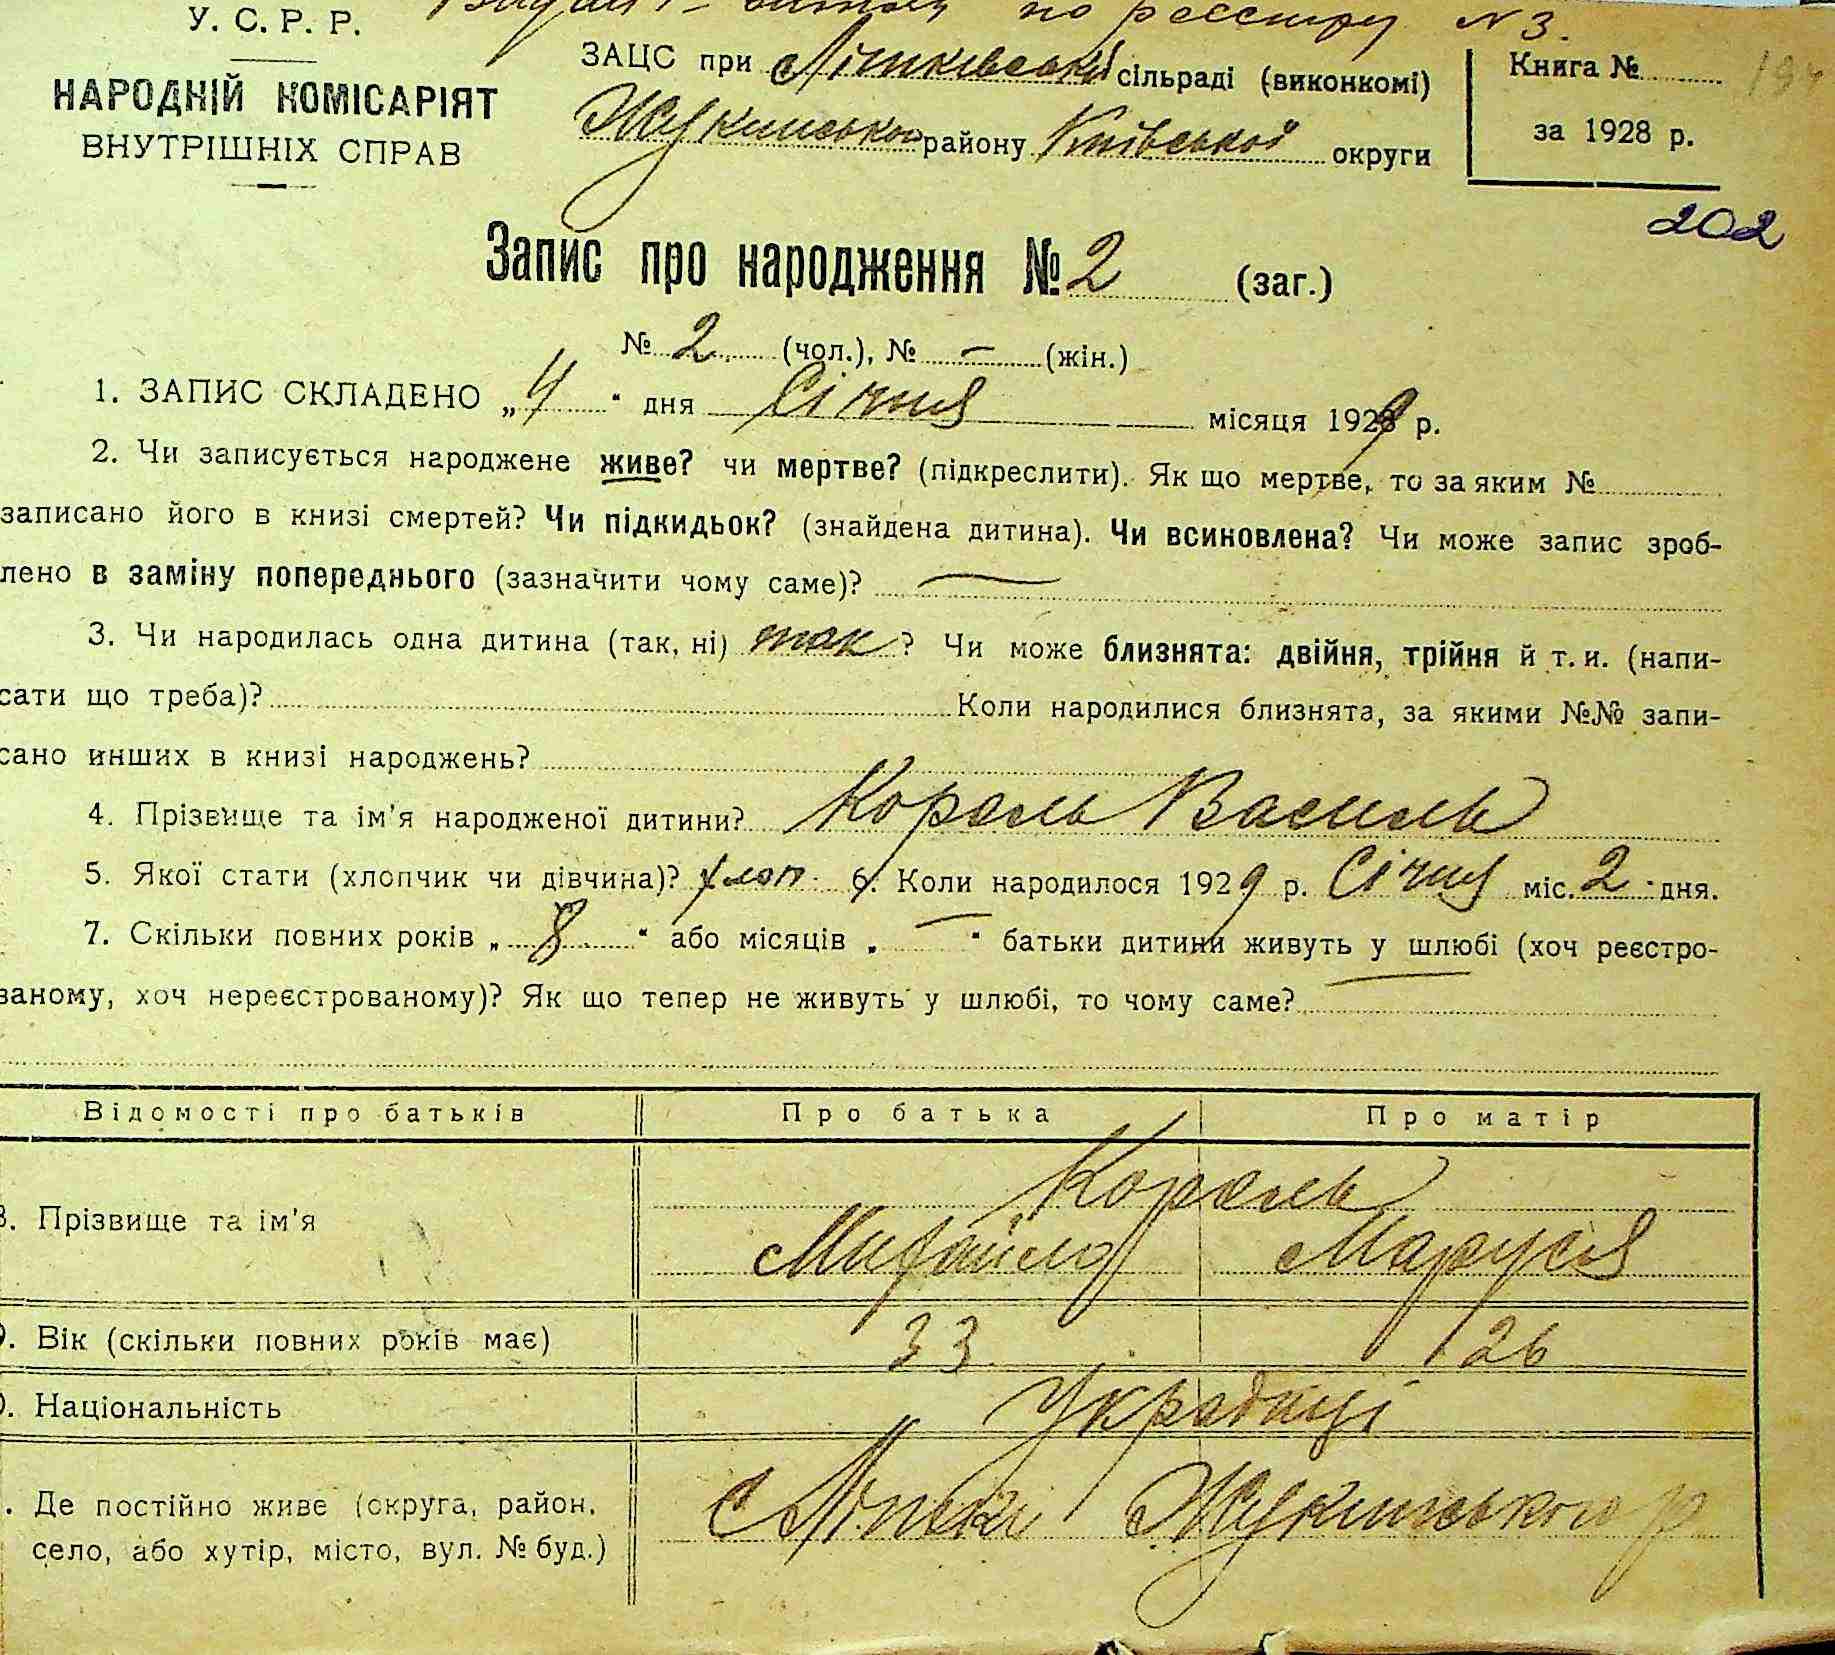 по реєстру N 3.
У. С. Р. Р.
НАРОДНІЙ КОМІСАРІЯТ
ВНУТРІШНІХ СПРАВ
ЗАЦС при Ліпківській сільраді (виконкомі)
Жукинського району Київської округи
Книга №
194
за 1928 р.
202
Запис про народження № 2 (заг.)
№ 2 (чол.), № — (жін.)
1. ЗАПИС СКЛАДЕНО „4“ дня Січня місяця 1929 р.
2. Чи записується народжене живе? чи мертве? (підкреслити). Як що мертве, то за яким №
записано його в книзі смертей? Чи підкидьок? (знайдена дитина). Чи всиновлена? Чи може запис зроб-
лено в заміну попереднього (зазначити чому саме)? —
3. Чи народилась одна дитина (так, ні) так? Чи може близнята: двійня, трійня й т. и. (напи-
сати що треба)? Коли народилися близнята, за якими №№ запи-
сано инших в книзі народжень?
4. Прізвище та ім'я народженої дитини? Король Василь
5. Якої стати (хлопчик чи дівчина)? хлоп. 6. Коли народилося 1929 р. Січня міс. 2 дня.
7. Скільки повних років „8“ або місяців „—“ батьки дитини живуть у шлюбі (хоч реєстро-
ваному, хоч нереєстрованому)? Як що тепер не живуть у шлюбі, то чому саме?
Відомості про батьків Про батька Про матір
8. Прізвище та ім'я Король
Михайло Маруся
9. Вік (скільки повних років має) 33 26
0. Національність Українці
. Де постійно живе (округа, район, с Ліпки Жукинського р
село, або хутір, місто, вул. № буд.)